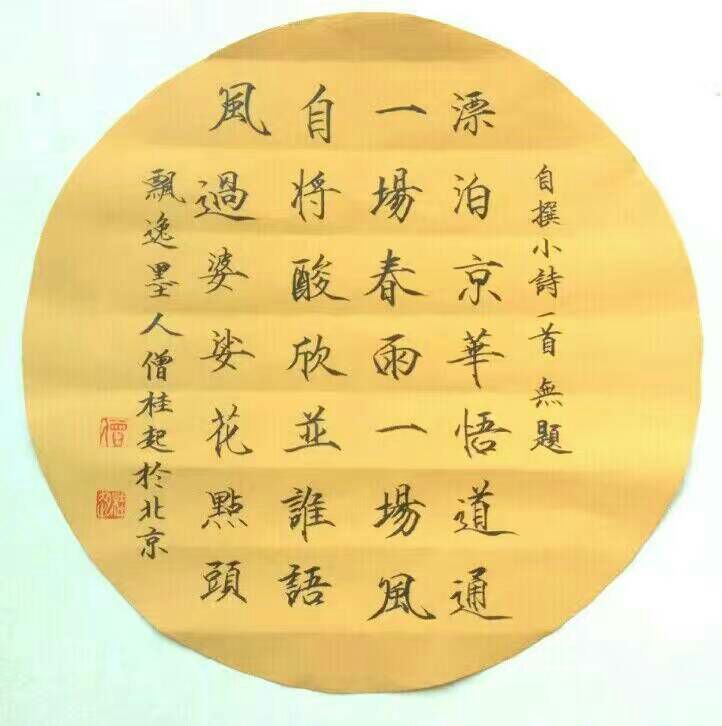 自撰小詩一首無題
漂泊京華悟道通
一場春雨一場風
自將酸欣並誰語
風過婆娑花點頭
飄逸墨人僧桂起於北京